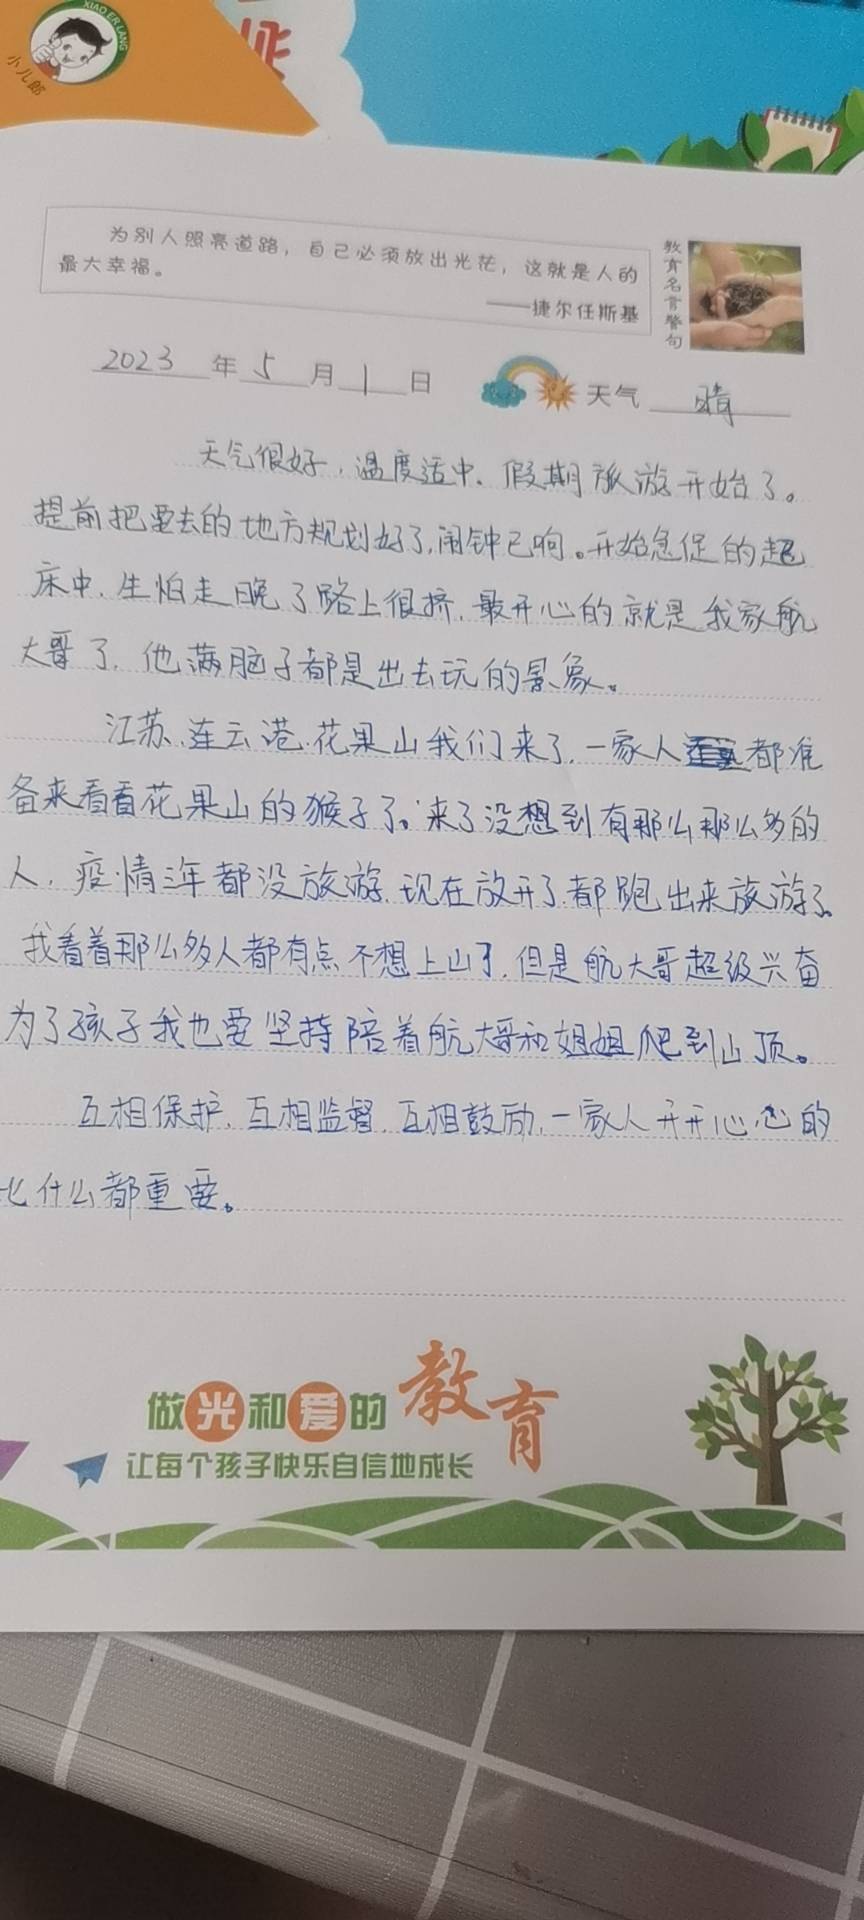 XIAO ER LANG
小儿郎
为别人照亮道路，自己必须放出光茫，这就是人的
最大幸福。
——捷尔任斯基
教育名言警句
2023年5月1日 天气 晴
天气很好，温度适中、假期旅游开始了。
提前把要去的地方规划好了，闹钟已响。开始急促的起
床中，生怕走晚了路上很挤，最开心的就是我家航
大哥了，他满脑子都是出去玩的景象。
江苏、连云港、花果山我们来了，一家人都准
备来看看花果山的猴子了。来了没想到有那么那么多的
人，疫情三年都没旅游，现在放开了都跑出来旅游了。
我看着那么多人都有点不想上山了，但是航大哥超级兴奋
为了孩子我也要坚持陪着航大哥和姐姐爬到山顶。
互相保护，互相监督，互相鼓励，一家人开开心心的
比什么都重要。
做光和爱的教育
让每个孩子快乐自信地成长